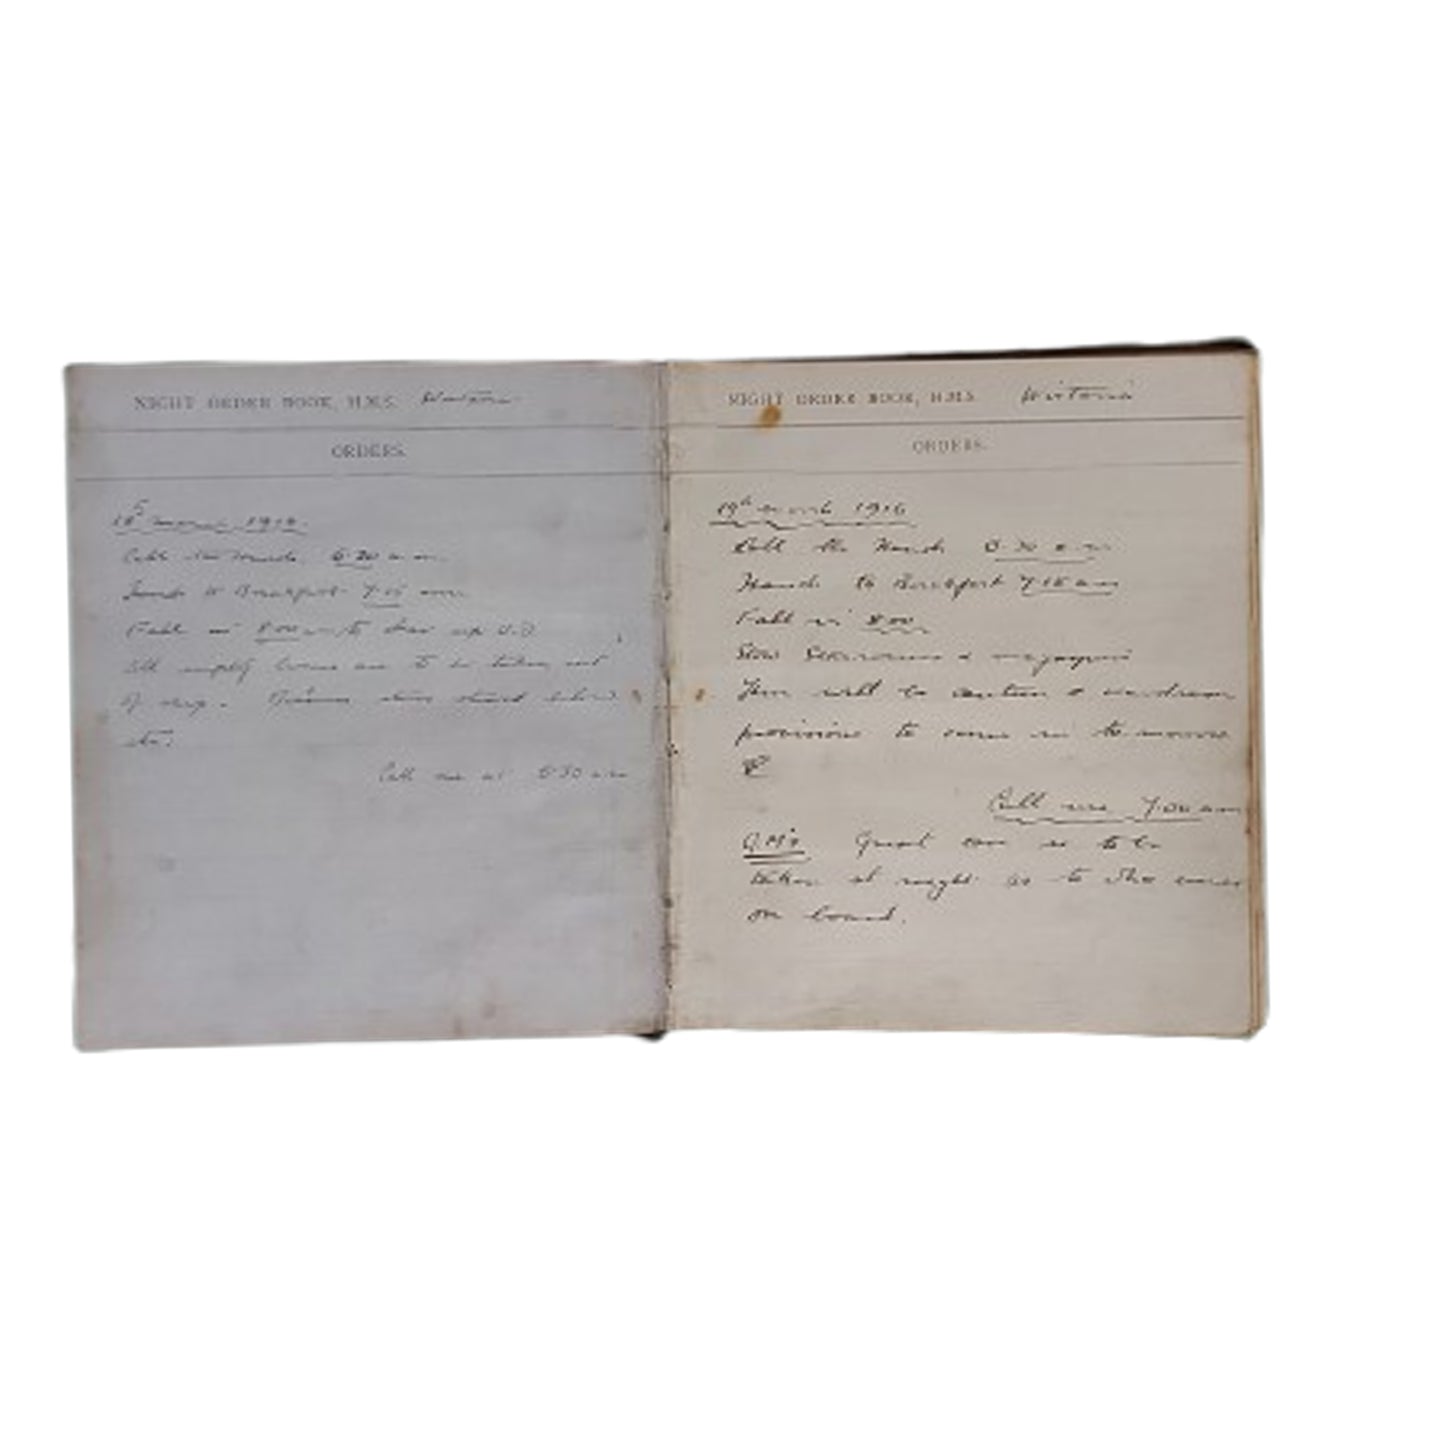 NIGHT ORDER BOOK, H.M.S.
ORDERS.
March 1916
Call the Hands 6.30 a.m.
Hands to Breakfast 7.15 am
Fall in 8.00 to clear up U.D
All empty are to be taken out
of ship. stores
etc.
Call me at 6.30 a.m
NIGHT ORDER BOOK, H.M.S.
ORDERS.
19th March 1916
Call the Hands 6.30 a.m.
Hands to Breakfast 7.15 am
Fall in 8.00
Stow & magazines
There will be canteen & wardroom
provisions to come in tomorrow
Call me 7.00 am
Q.M's Great care is to be
taken at night as to who comes
on board.